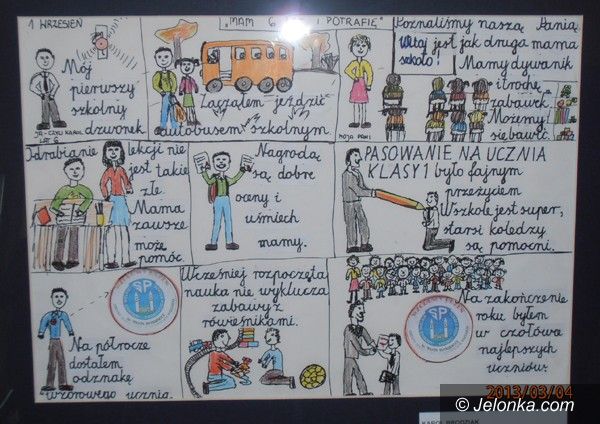 1 WRZESIEŃ
Mój
pierwszy
szkolny
dzwonek
JA - CZYLI KAROL
LAT 6
"MAM 6 I POTRAFIĘ"
Zacząłem jeździć
autobusem szkolnym
Poznaliśmy naszą Panią
Witaj
szkoło!
jest jak druga mama
Mamy dywanik
i trochę
zabawek
Możemy
się bawić
MOJA PANI
Odrabianie
lekcji nie
jest takie
złe.
Mama
zawsze
może
pomóc.
Nagrodą
są dobre
oceny i
uśmiech
mamy.
PASOWANIE NA UCZNIA
KLASY 1 było fajnym
przeżyciem
W szkole jest super,
starsi koledzy
są pomocni.
SP
Na półrocze
dostałem
odznakę
wzorowego ucznia.
Wcześniej rozpoczęta
nauka nie wyklucza
zabawy z
rówieśnikami.
SP
Na zakończenie
roku byłem
w czołówce
najlepszych
uczniów.
2013/03/04
KAROL BRODZIAK
© Jelonka.com